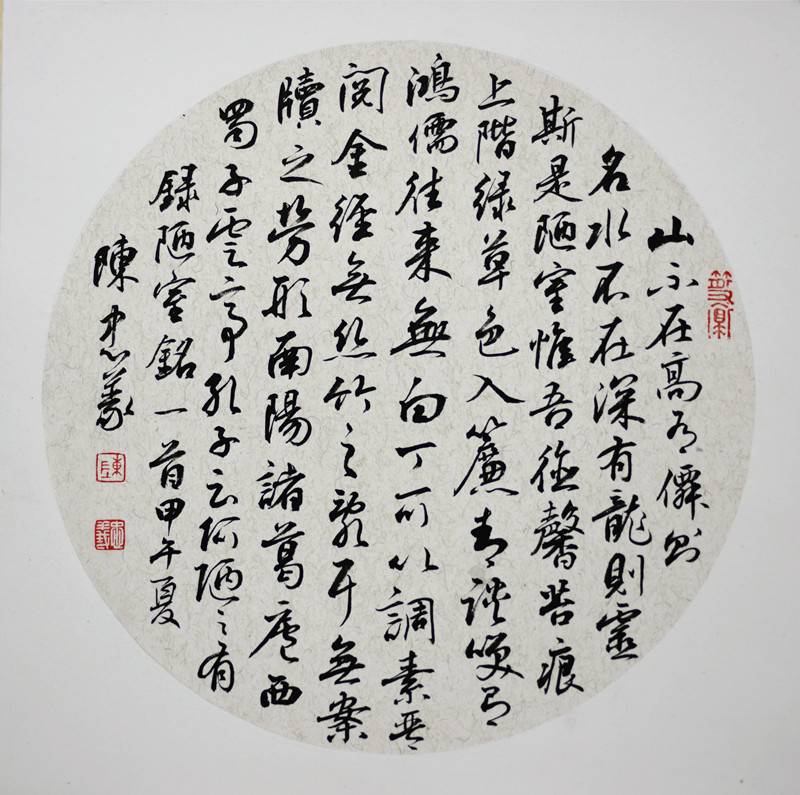 山不在高有僊則
名水不在深有龍則靈
斯是陋室惟吾德馨苔痕
上階綠草色入簾青談笑有
鴻儒往來無白丁可以調素琴
閱金經無絲竹之亂耳無案
牘之勞形南陽諸葛廬西
蜀子雲亭孔子云何陋之有
錄陋室銘一首甲午夏
陳忠義
忠義